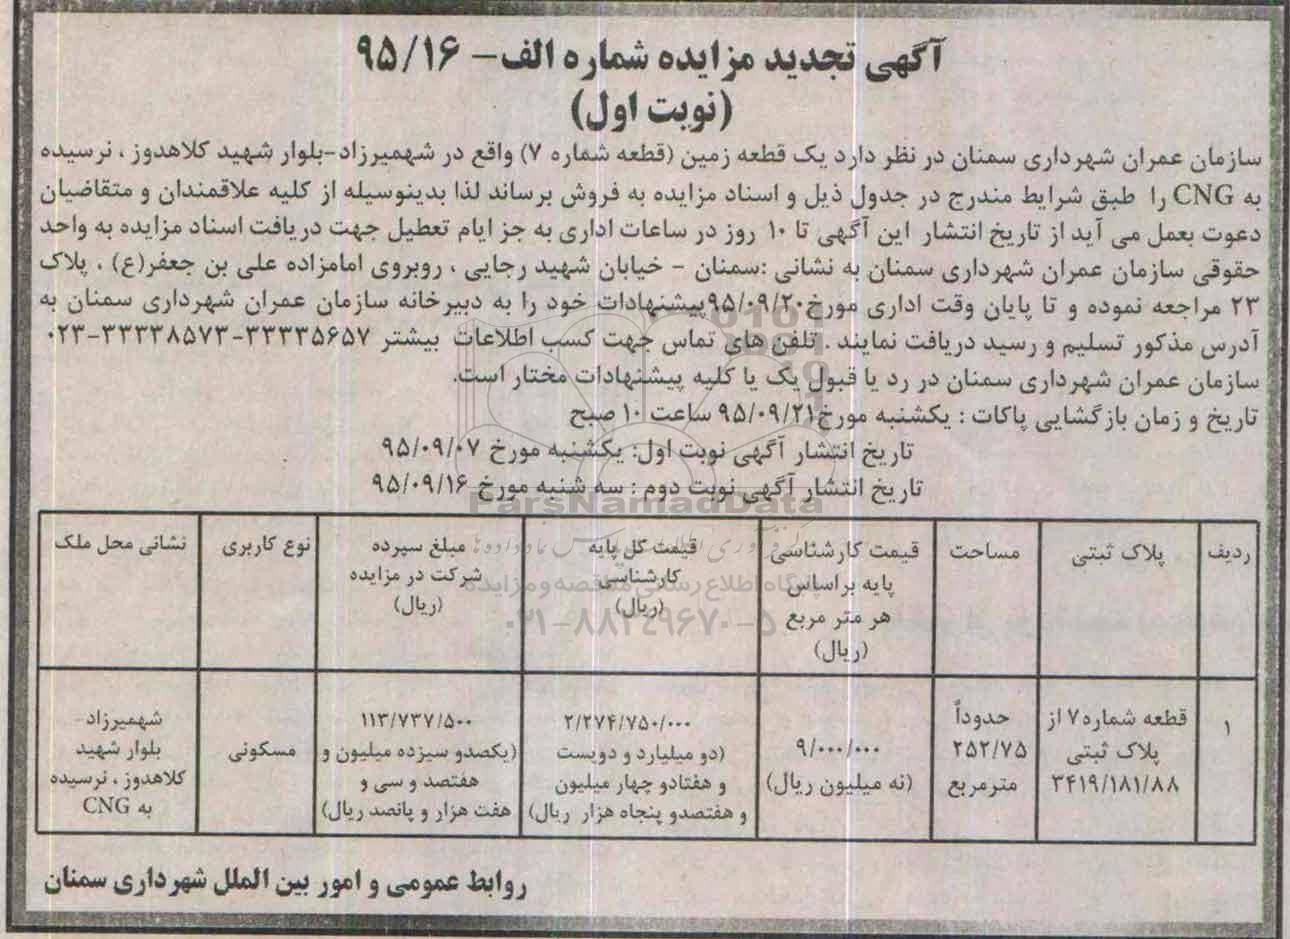 آگهی تجدید مزایده شماره الف- ۹۵/۱۶
(نوبت اول)
سازمان عمران شهرداری سمنان در نظر دارد یک قطعه زمین (قطعه شماره ۷) واقع در شهمیرزاد-بلوار شهید کلاهدوز ، نرسیده
به CNG را طبق شرایط مندرج در جدول ذیل و اسناد مزایده به فروش برساند لذا بدینوسیله از کلیه علاقمندان و متقاضیان
دعوت بعمل می آید از تاریخ انتشار این آگهی تا ۱۰ روز در ساعات اداری به جز ایام تعطیل جهت دریافت اسناد مزایده به واحد
حقوقی سازمان عمران شهرداری سمنان به نشانی :سمنان - خیابان شهید رجایی ، روبروی امامزاده علی بن جعفر(ع) ، پلاک
۲۳ مراجعه نموده و تا پایان وقت اداری مورخ۹۵/۰۹/۲۰پیشنهادات خود را به دبیرخانه سازمان عمران شهرداری سمنان به
آدرس مذکور تسلیم و رسید دریافت نمایند . تلفن های تماس جهت کسب اطلاعات بیشتر ۳۳۳۳۵۶۵۷-۳۳۳۳۸۵۷۳-۰۲۳
سازمان عمران شهرداری سمنان در رد یا قبول یک یا کلیه پیشنهادات مختار است.
تاریخ و زمان بازگشایی پاکات : یکشنبه مورخ۹۵/۰۹/۲۱ ساعت ۱۰ صبح
تاریخ انتشار آگهی نوبت اول: یکشنبه مورخ ۹۵/۰۹/۰۷
تاریخ انتشار آگهی نوبت دوم : سه شنبه مورخ ۹۵/۰۹/۱۶
ParsNamadData
پایگاه اطلاع رسانی مناقصه و مزایده
۰۲۱-۸۸۳۴۹۶۷۰-۵
ردیف
پلاک ثبتی
مساحت
قیمت کارشناسی
پایه براساس
هر متر مربع
(ریال)
قیمت کل پایه
کارشناسی
(ریال)
مبلغ سپرده
شرکت در مزایده
(ریال)
نوع کاربری
نشانی محل ملک
۱
قطعه شماره۷ از
پلاک ثبتی
۳۴۱۹/۱۸۱/۸۸
حدوداً
۲۵۲/۷۵
مترمربع
۹/۰۰۰/۰۰۰
(نه میلیون ریال)
۲/۲۷۴/۷۵۰/۰۰۰
(دو میلیارد و دویست
و هفتادو چهار میلیون
و هفتصدو پنجاه هزار ریال)
۱۱۳/۷۳۷/۵۰۰
(یکصدو سیزده میلیون و
هفتصد و سی و
هفت هزار و پانصد ریال)
مسکونی
شهمیرزاد-
بلوار شهید
کلاهدوز ، نرسیده
به CNG
روابط عمومی و امور بین الملل شهرداری سمنان